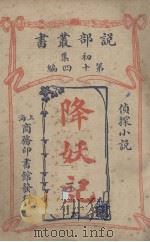 說部叢書
初集
第十四編
偵探小說
降妖記
上海
商務印書館發